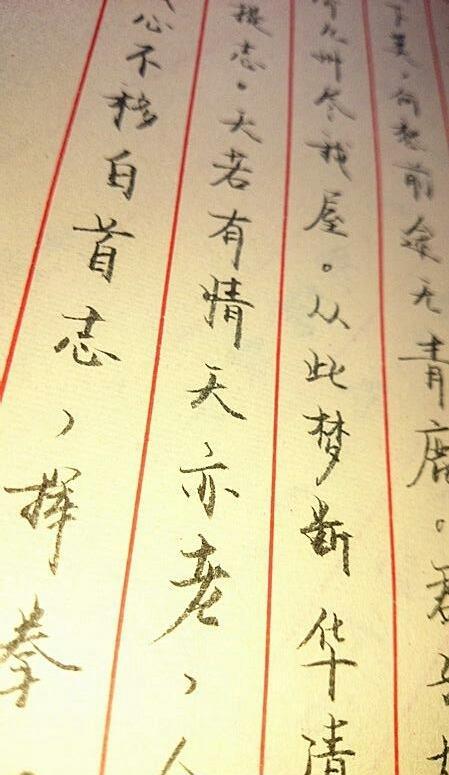 何愁前途无青鹿。君
九州尽我屋。从此梦断华清
提志。天若有情天亦老，人
心不移白首志，挥拳